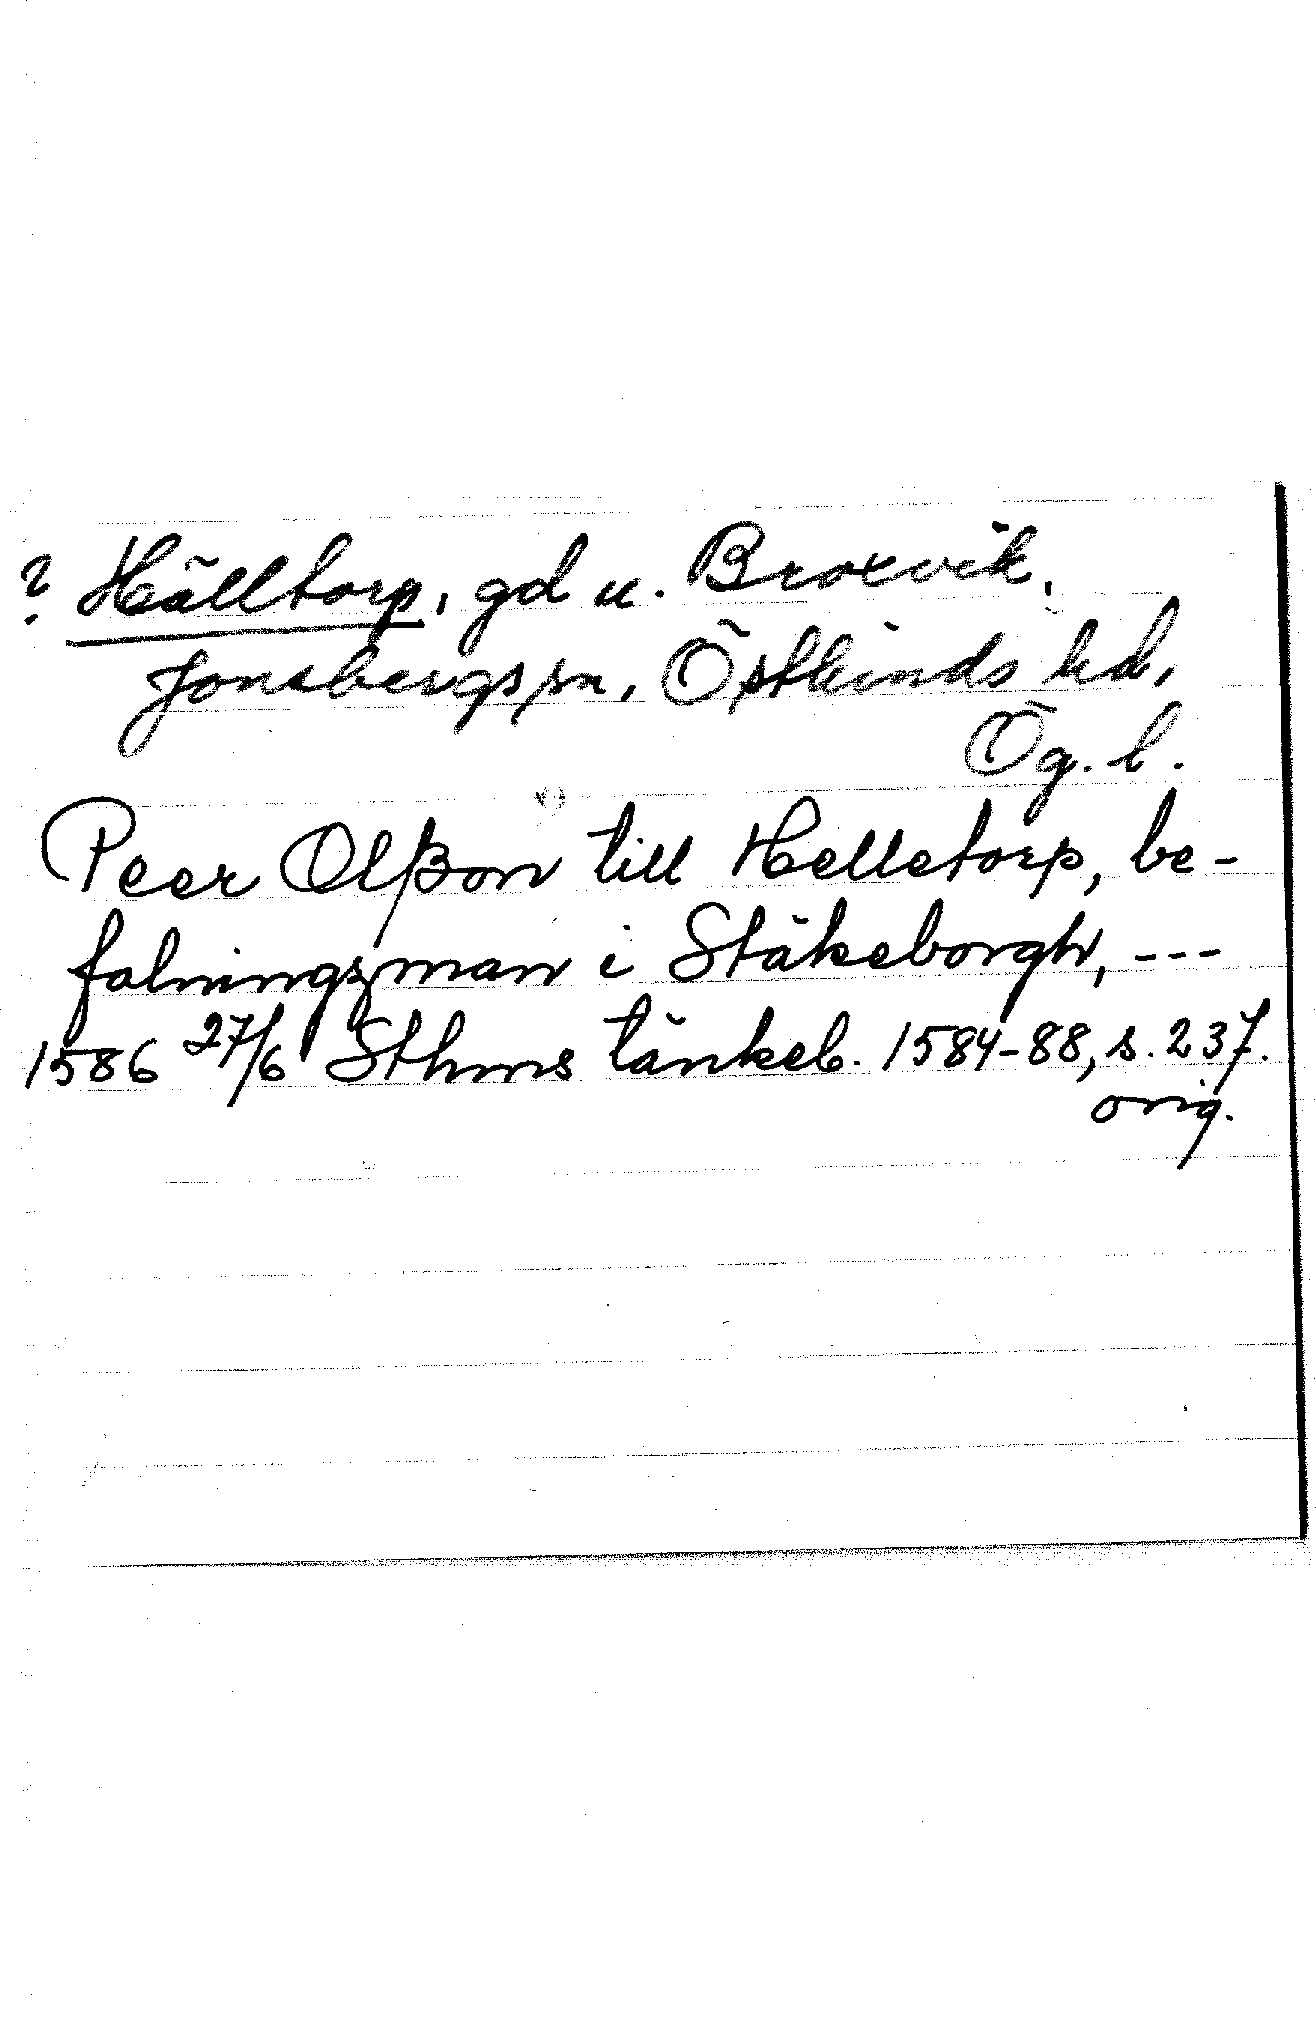 ? Hälltorp, gd u. Broxvik,
Jonsbergs sn, Östkinds hd,
Ög. l.
Peer Olßon till Helletorp, be-
falningzman i Stäkeborgh, ---
1586 27/6 Sthms tänkeb. 1584-88, s. 237.
orig.